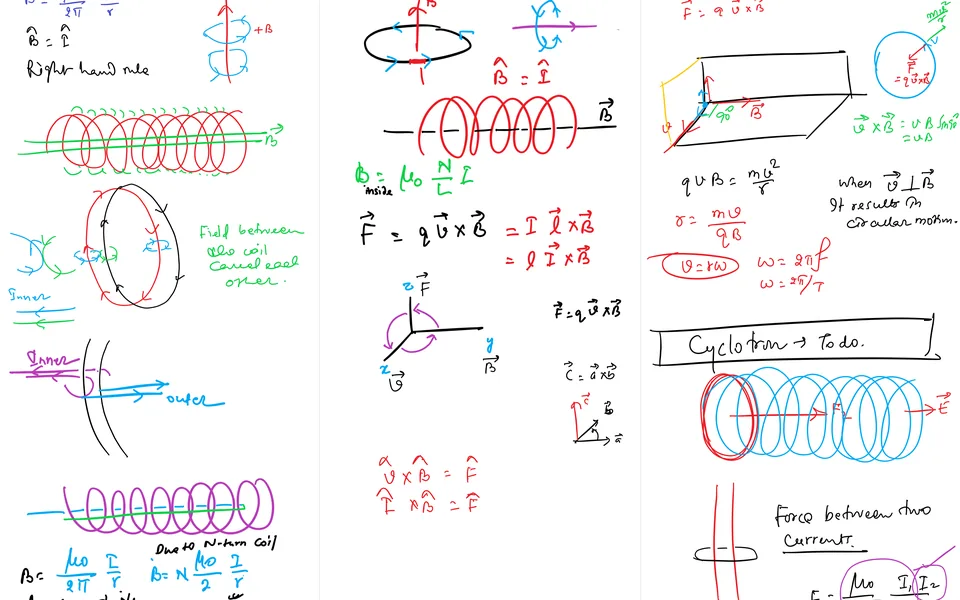 B = I / 2π r
+B
B̂ = Î
Right hand rule
B⃗
Field between
the coil
Cancel each
other.
Inner
Inner
outer
Due to N-turn coil
B = μ₀/2π I/r B = N μ₀/2 I/r
B
B̂ = Î
B⃗
B = μ₀ N/L I
inside
F⃗ = q v⃗ × B⃗ = I l⃗ × B⃗
= l I⃗ × B⃗
z F⃗
x y
v⃗ B⃗
F⃗ = q v⃗ × B⃗
C⃗ = a⃗ × b⃗
c⃗
b
a⃗
v̂ × B̂ = F̂
Î × B̂ = F̂
F⃗ = q v⃗ × B⃗
mv²/r
v
F⃗
= q v⃗ × B⃗
90°
B⃗
v
v⃗ × B⃗ = v B Sin90°
= vB
qvB = mv²/r
r = mv/qB
v = rω
ω = 2πf
ω = 2π/T
when v⃗ ⊥ B⃗
It results in
circular motion.
Cyclotron → To do.
F
E⃗
Force between two
currents.
F = μ₀ I₁ I₂